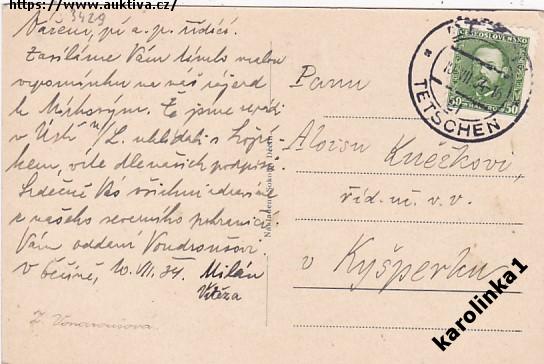 https://www.auktiva.cz/
3429
Vážení, pí a. p. řídící.
Zasíláme Vám tímto malou
vzpomínku na náš zájezd
k Že jsme
v Ústí n/L. uhlídali s
kem, víte dle našich podpisů.
Srdečně Vás všichni zdravíme
z našeho severního pohraničí.
Vám oddaní Voudroušovi
v 10. VII. 34. Milán
Vítěza
Z. Voudroušova
Nakladem Sokola Děčín
ČESKOSLOVENSKO
50 50
TETSCHEN
Panu
Aloisu Kněčkovi
říd. uč. v. v.
v Kyšperku
karolinka1